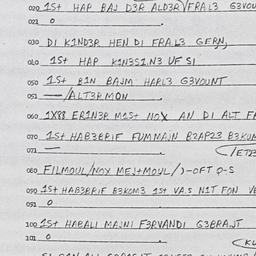 020 1St HAP BAJ D3R ALD3R/FRAL3 G3VOU
021 0
030 DI K1ND3R HEN DI FRAL3 GERN,
040 1St HAP K1N3S1.N3 UFSI
050 1St B1N BAJM HARL3 G3VOUNT
051 — /ALT3RMON
060 1X88 ER1N3R M1St NOX AN DI ALT FA
070 1St HAB3BRIF FUMMAJN B2AP23 B3KUM
071 —
080 FILMOUL/NOX MEJtMOUL/)-OFT P-S
090 1St HAB3BRIF B3KOM3 1St VA.S N1T FON VE
091 0
100 1St HABALI MAJNI F3RVANDI G3BRAJT
101 0